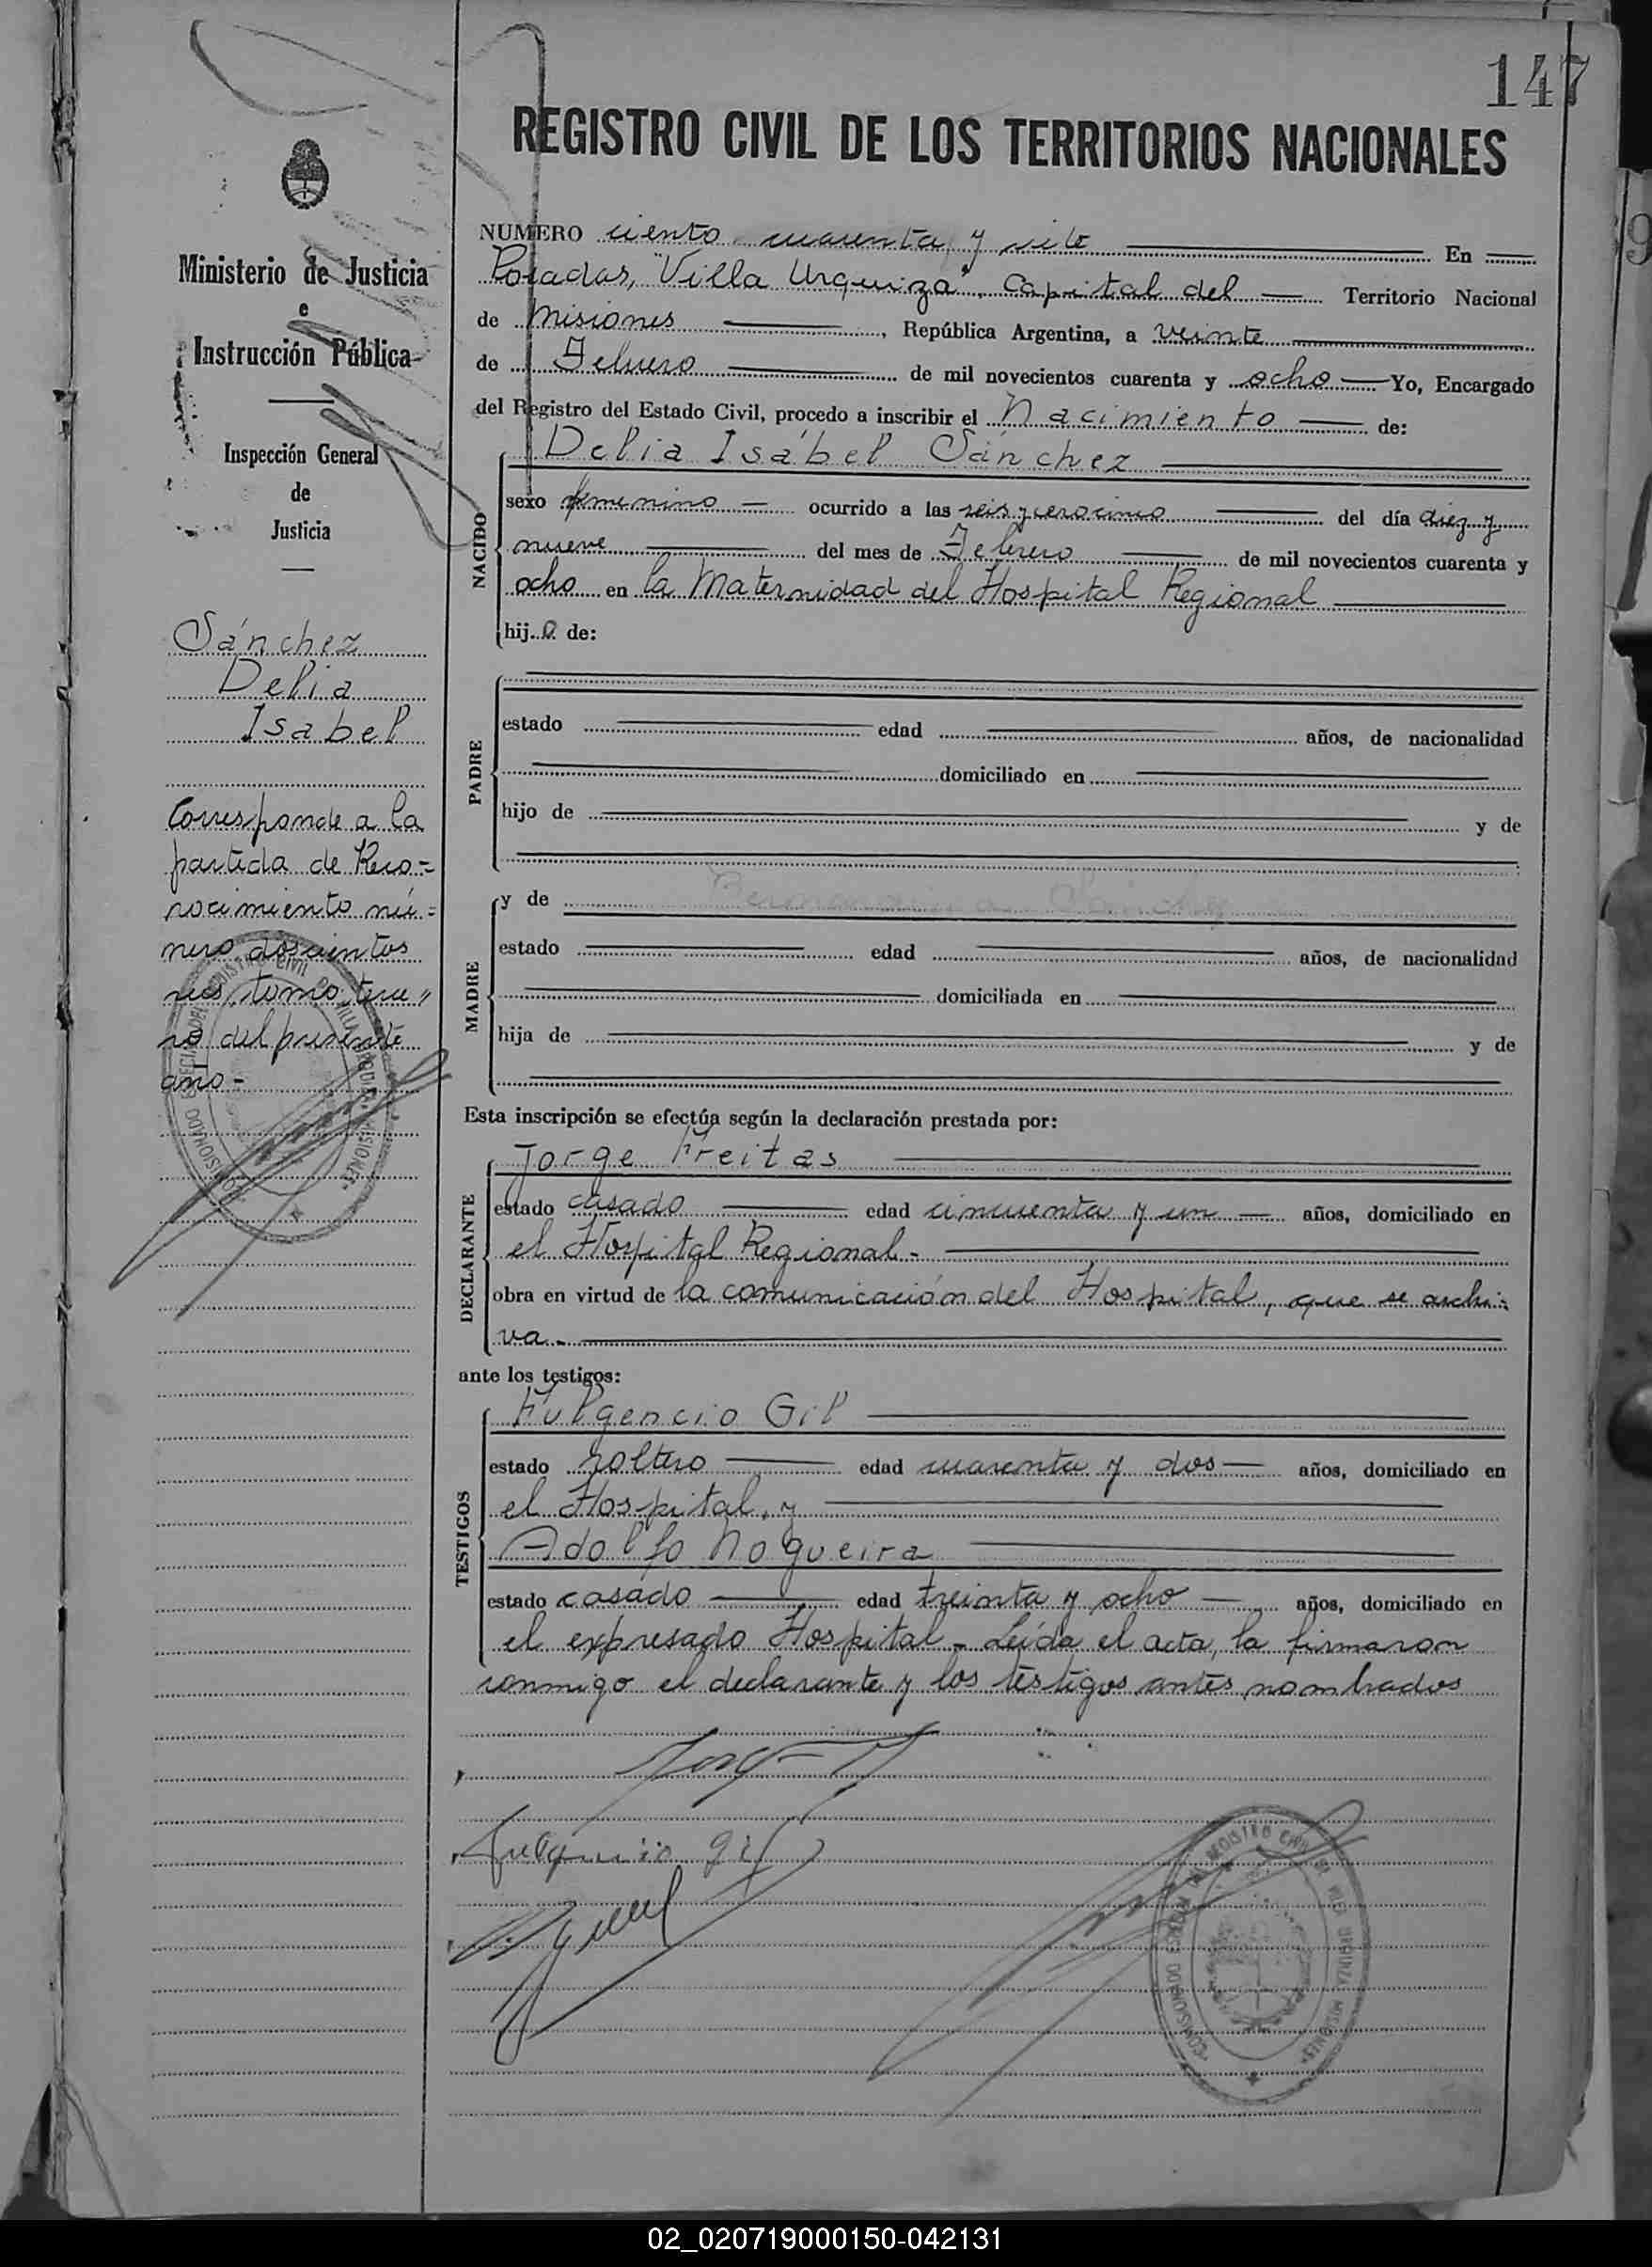 147
REGISTRO CIVIL DE LOS TERRITORIOS NACIONALES
Ministerio de Justicia
e
Instrucción Pública
Inspección General
de
Justicia
Sánchez
Delia
Isabel
Corresponde a la
partida de Reco=
nocimiento nú=
mero doscientos
tres, tomo terce"
ro del presente
año-
NUMERO ciento cuarenta y siete En
Posadas, "Villa Urquiza", Capital del Territorio Nacional
de Misiones, República Argentina, a veinte
de Febrero de mil novecientos cuarenta y ocho Yo, Encargado
del Registro del Estado Civil, procedo a inscribir el Nacimiento de:
Delia Isábel Sánchez
NACIDO
sexo femenino ocurrido a las seis y cero cinco del día diez y
nueve del mes de Febrero de mil novecientos cuarenta y
ocho en la Maternidad del Hospital Regional
hija de:
PADRE
estado edad años, de nacionalidad
domiciliado en
hijo de y de
MADRE
y de
estado edad años, de nacionalidad
domiciliada en
hija de y de
Esta inscripción se efectúa según la declaración prestada por:
DECLARANTE
Jorge Freitas
estado casado edad cincuenta y un años, domiciliado en
el Hospital Regional-
obra en virtud de la comunicación del Hospital, que se archi-
va-
ante los testigos:
TESTIGOS
Fulgencio Gil
estado soltero edad cuarenta y dos años, domiciliado en
el Hospital, y
Adolfo Nogueira
estado casado edad treinta y ocho años, domiciliado en
el expresado Hospital- Leída el acta, la firmaron
conmigo el declarante y los testigos antes nombrados
Fulgencio Gil
02_020719000150-042131